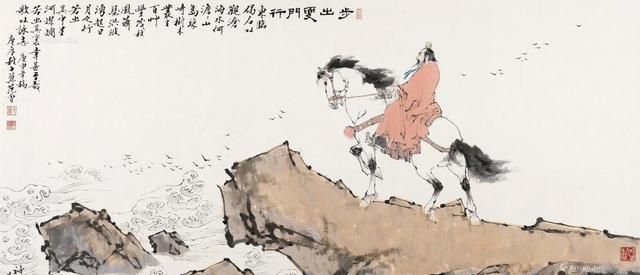 步出夏門行
東臨
碣石以
觀滄
海水何
澹澹山
島竦
峙樹木
叢生
百草
豐茂秋
風蕭
瑟洪波
湧起日
月之行
若出
其中星
河燦爛
若出其裏幸甚至哉
歌以詠志 庚申年
范曾